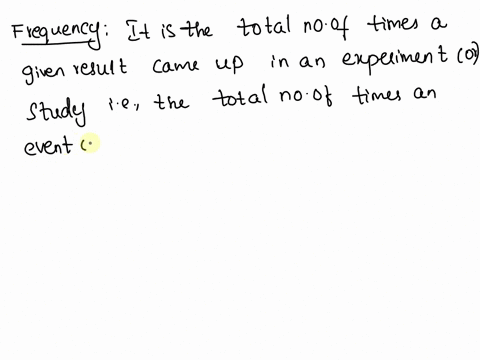 Frequency: It is the total no.of times a
given result came up in an experiment (or)
study i.e., the total no.of times an
event